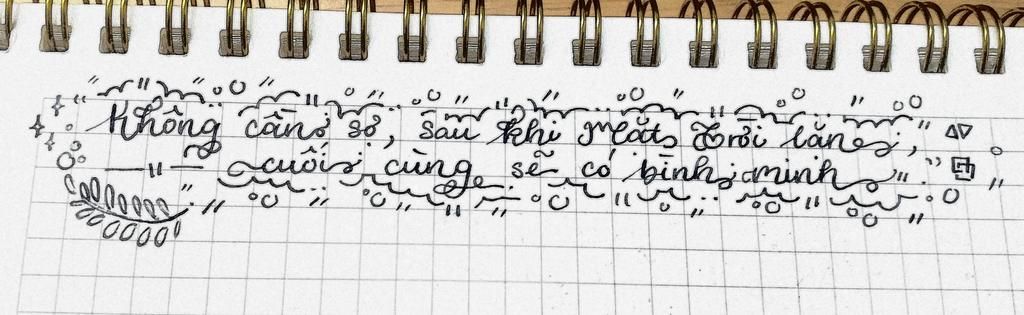 Không cần sợ, sau khi Mặt Trời lặn,
cuối cùng sẽ có bình minh